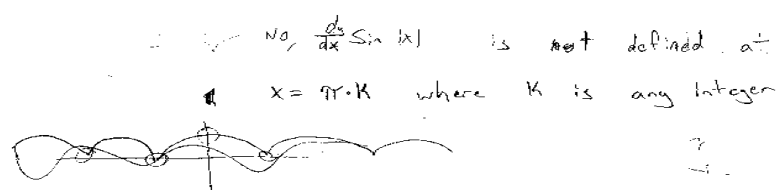 No, dy/dx Sin |x| is not defined at
x = π·K where K is any Integer
?